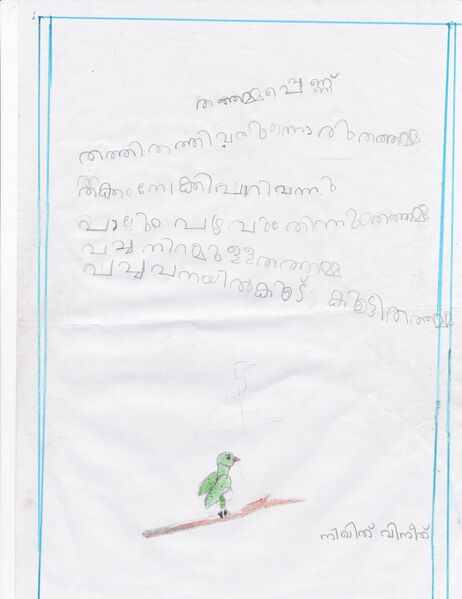 തത്തമ്മപ്പെണ്ണ്
തത്തി തത്തി വരുന്നൊരു തത്തമ്മ
തക്കംനോക്കി പാറി വന്നു
പാലും പഴവും തിന്നുംതത്തമ്മ
പച്ച നിറമുള്ള തത്തമ്മ
പച്ച പനയിൽ കൂട് കൂട്ടി തത്തമ്മ
നിഖിത് വിനീത്